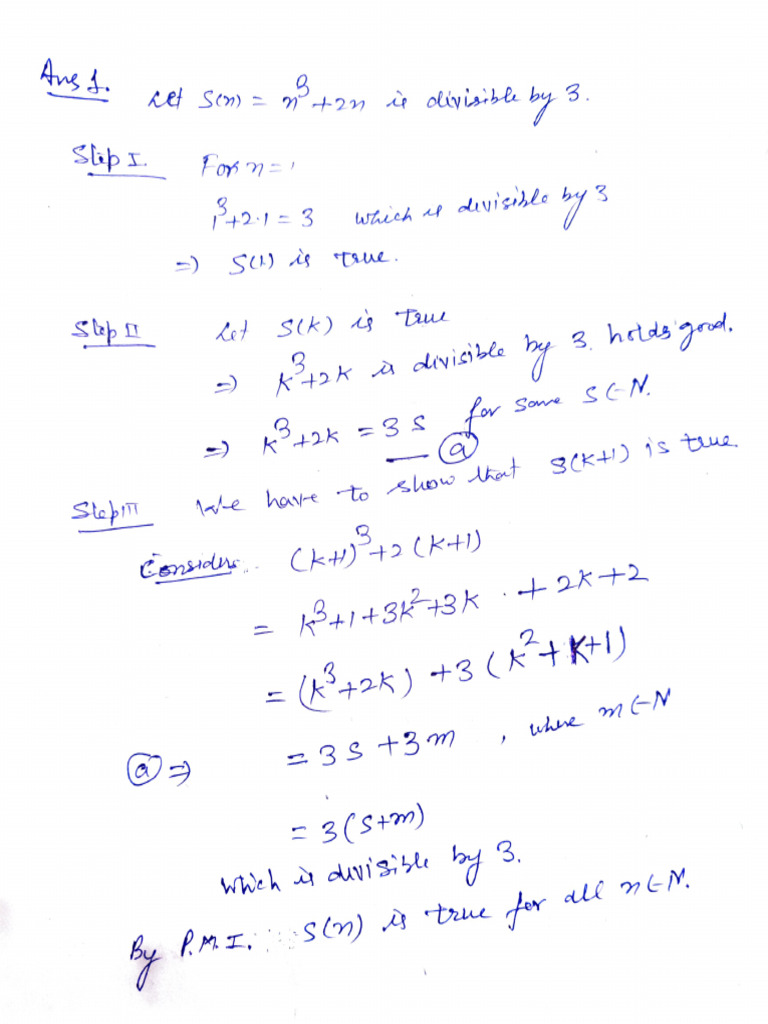 Ans 1. Let S(n) = n³+2n is divisible by 3.
Step I. For n=1
1³+2·1 = 3 which is divisible by 3
⇒ S(1) is true.
Step II Let S(k) is true
⇒ k³+2k is divisible by 3. holds good.
⇒ k³+2k = 3s for some s∈N.
— ⓐ
Step III We have to show that S(k+1) is true.
Consider (k+1)³+2(k+1)
= k³+1+3k²+3k + 2k+2
= (k³+2k) +3(k²+k+1)
ⓐ ⇒ = 3s +3m , where m∈N
= 3(s+m)
which is divisible by 3.
By P.M.I. S(n) is true for all n∈N.